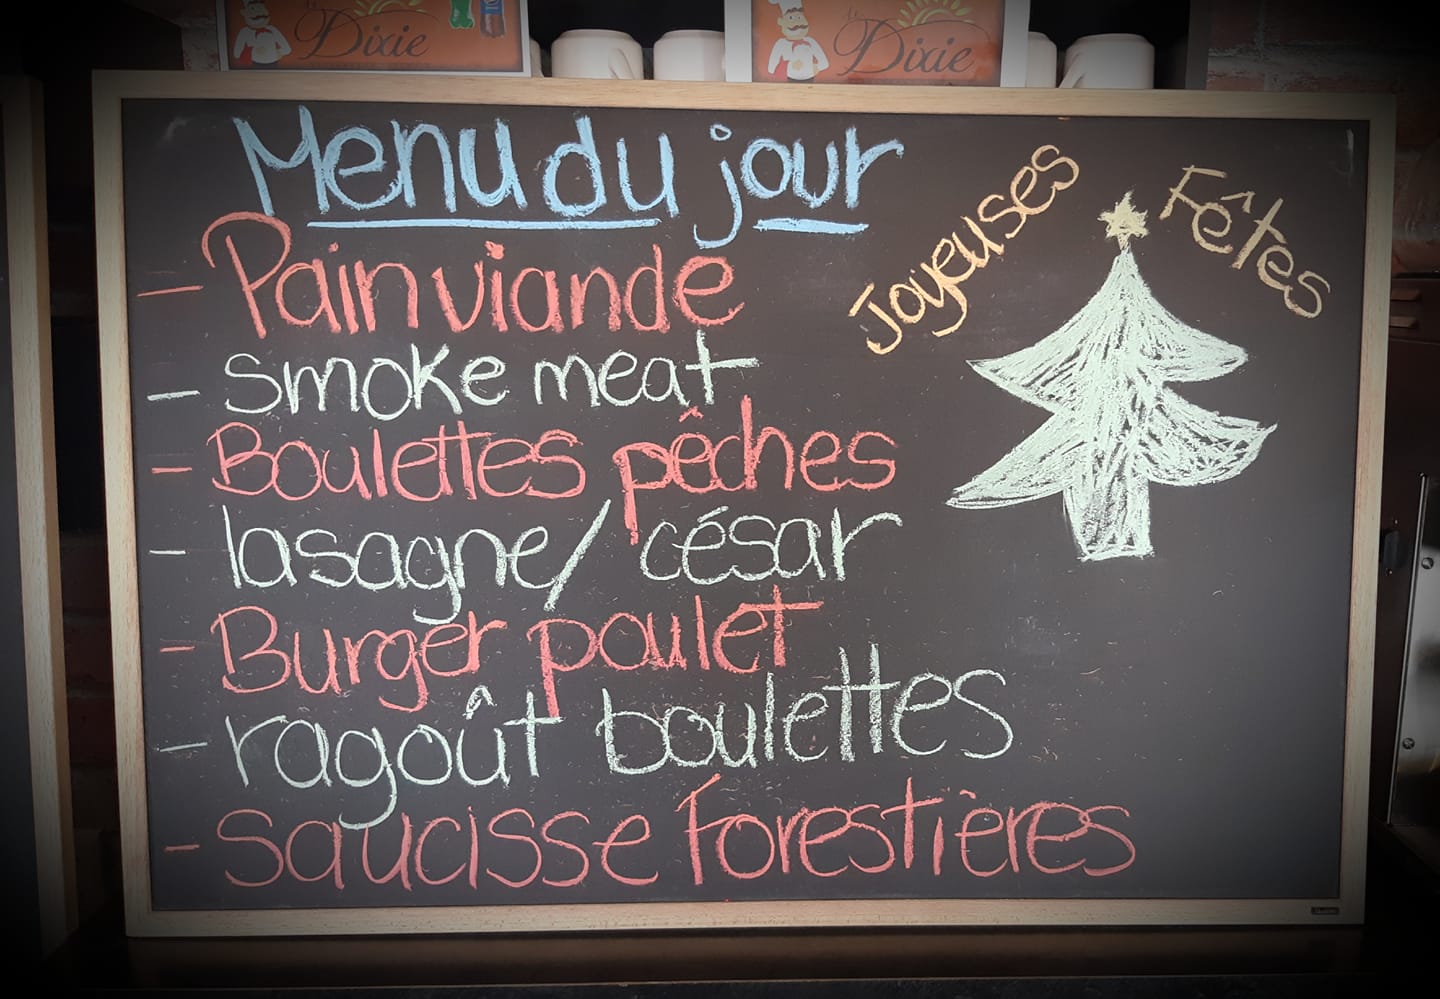 Le Dixie
Dixie
Menu du jour
Joyeuses Fêtes
- Pain viande
- smoke meat
- Boulettes pêches
- lasagne/ césar
- Burger poulet
- ragoût boulettes
- saucisse Forestières